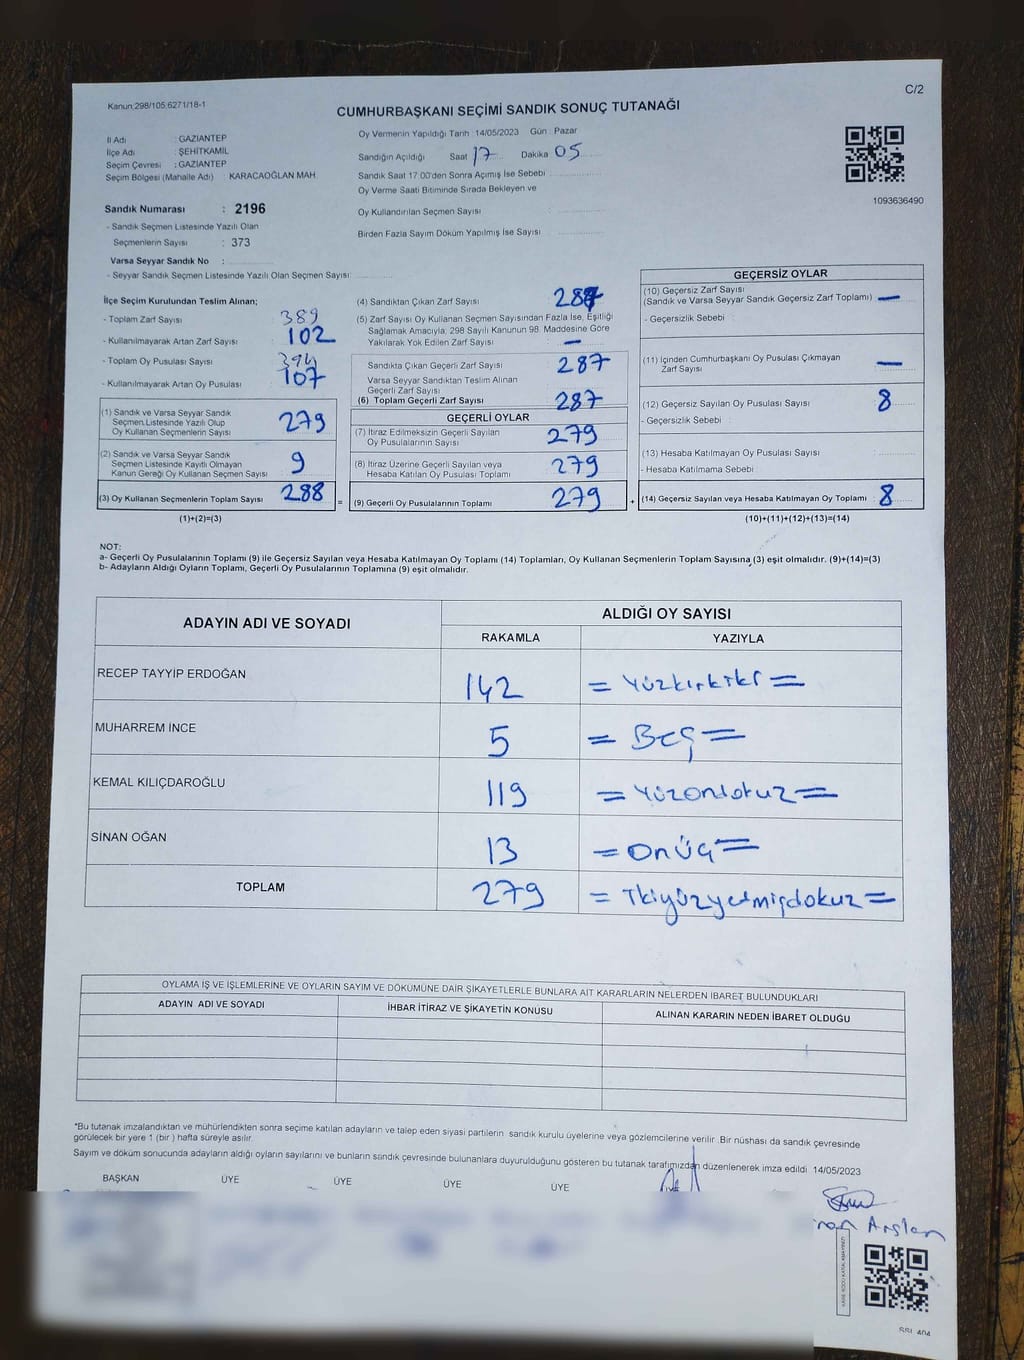 Kanun:298/105;6271/18-1
C/2
CUMHURBAŞKANI SEÇİMİ SANDIK SONUÇ TUTANAĞI
İl Adı : GAZIANTEP
İlçe Adı : ŞEHİTKAMİL
Seçim Çevresi : GAZIANTEP
Seçim Bölgesi (Mahalle Adı) : KARACAOĞLAN MAH.
Oy Vermenin Yapıldığı Tarih 14/05/2023 Gün Pazar
Sandığın Açıldığı Saat 17 Dakika 05
Sandık Saat 17.00'den Sonra Açımış İse Sebebi
Oy Verme Saati Bitiminde Sırada Bekleyen ve
Oy Kullandırılan Seçmen Sayısı :
Birden Fazla Sayım Döküm Yapılmış İse Sayısı :
1093636490
Sandık Numarası : 2196
- Sandık Seçmen Listesinde Yazılı Olan
Seçmenlerin Sayısı : 373
Varsa Seyyar Sandık No :
- Seyyar Sandık Seçmen Listesinde Yazılı Olan Seçmen Sayısı:
İlçe Seçim Kurulundan Teslim Alınan;
- Toplam Zarf Sayısı 389
- Kullanılmayarak Artan Zarf Sayısı : 102
- Toplam Oy Pusulası Sayısı : 394
- Kullanılmayarak Artan Oy Pusulası : 107
(1) Sandık ve Varsa Seyyar Sandık
Seçmen Listesinde Yazılı Olup
Oy Kullanan Seçmenlerin Sayısı 279
(2) Sandık ve Varsa Seyyar Sandık
Seçmen Listesinde Kayıtlı Olmayan
Kanun Gereği Oy Kullanan Seçmen Sayısı 9
(3) Oy Kullanan Seçmenlerin Toplam Sayısı 288
(1)+(2)=(3)
(4) Sandıktan Çıkan Zarf Sayısı 287
(5) Zarf Sayısı Oy Kullanan Seçmen Sayısından Fazla İse, Eşitliği
Sağlamak Amacıyla; 298 Sayılı Kanunun 98. Maddesine Göre
Yakılarak Yok Edilen Zarf Sayısı : —
Sandıkta Çıkan Geçerli Zarf Sayısı 287
Varsa Seyyar Sandıktan Teslim Alınan
Geçerli Zarf Sayısı
(6) Toplam Geçerli Zarf Sayısı 287
GEÇERLİ OYLAR
(7) İtiraz Edilmeksizin Geçerli Sayılan
Oy Pusulalarının Sayısı 279
(8) İtiraz Üzerine Geçerli Sayılan veya
Hesaba Katılan Oy Pusulası Toplamı 279
= (9) Geçerli Oy Pusulalarının Toplamı 279 +
GEÇERSİZ OYLAR
(10) Geçersiz Zarf Sayısı
(Sandık ve Varsa Seyyar Sandık Geçersiz Zarf Toplamı) —
- Geçersizlik Sebebi :
(11) İçinden Cumhurbaşkanı Oy Pusulası Çıkmayan
Zarf Sayısı —
(12) Geçersiz Sayılan Oy Pusulası Sayısı 8
- Geçersizlik Sebebi :
(13) Hesaba Katılmayan Oy Pusulası Sayısı
- Hesaba Katılmama Sebebi :
(14) Geçersiz Sayılan veya Hesaba Katılmayan Oy Toplamı 8
(10)+(11)+(12)+(13)=(14)
NOT:
a- Geçerli Oy Pusulalarının Toplamı (9) ile Geçersiz Sayılan veya Hesaba Katılmayan Oy Toplamı (14) Toplamları, Oy Kullanan Seçmenlerin Toplam Sayısına (3) eşit olmalıdır. (9)+(14)=(3)
b- Adayların Aldığı Oyların Toplamı, Geçerli Oy Pusulalarının Toplamına (9) eşit olmalıdır.
ADAYIN ADI VE SOYADI
ALDIĞI OY SAYISI
RAKAMLA YAZIYLA
RECEP TAYYİP ERDOĞAN 142 = Yüzkırkiki =
MUHARREM İNCE 5 = Beş =
KEMAL KILIÇDAROĞLU 119 = Yüzondokuz =
SİNAN OĞAN 13 = Onüç =
TOPLAM 279 = İkiyüzyetmişdokuz =
OYLAMA İŞ VE İŞLEMLERİNE VE OYLARIN SAYIM VE DÖKÜMÜNE DAİR ŞİKAYETLERLE BUNLARA AİT KARARLARIN NELERDEN İBARET BULUNDUKLARI
ADAYIN ADI VE SOYADI İHBAR İTİRAZ VE ŞİKAYETİN KONUSU ALINAN KARARIN NEDEN İBARET OLDUĞU
*Bu tutanak imzalandıktan ve mühürlendikten sonra seçime katılan adayların ve talep eden siyasi partilerin sandık kurulu üyelerine veya gözlemcilerine verilir .Bir nüshası da sandık çevresinde
görülecek bir yere 1 (bir ) hafta süreyle asılır.
Sayım ve döküm sonucunda adayların aldığı oyların sayılarını ve bunların sandık çevresinde bulunanlara duyurulduğunu gösteren bu tutanak tarafımızdan düzenlenerek imza edildi 14/05/2023
BAŞKAN ÜYE ÜYE ÜYE ÜYE
Arslan